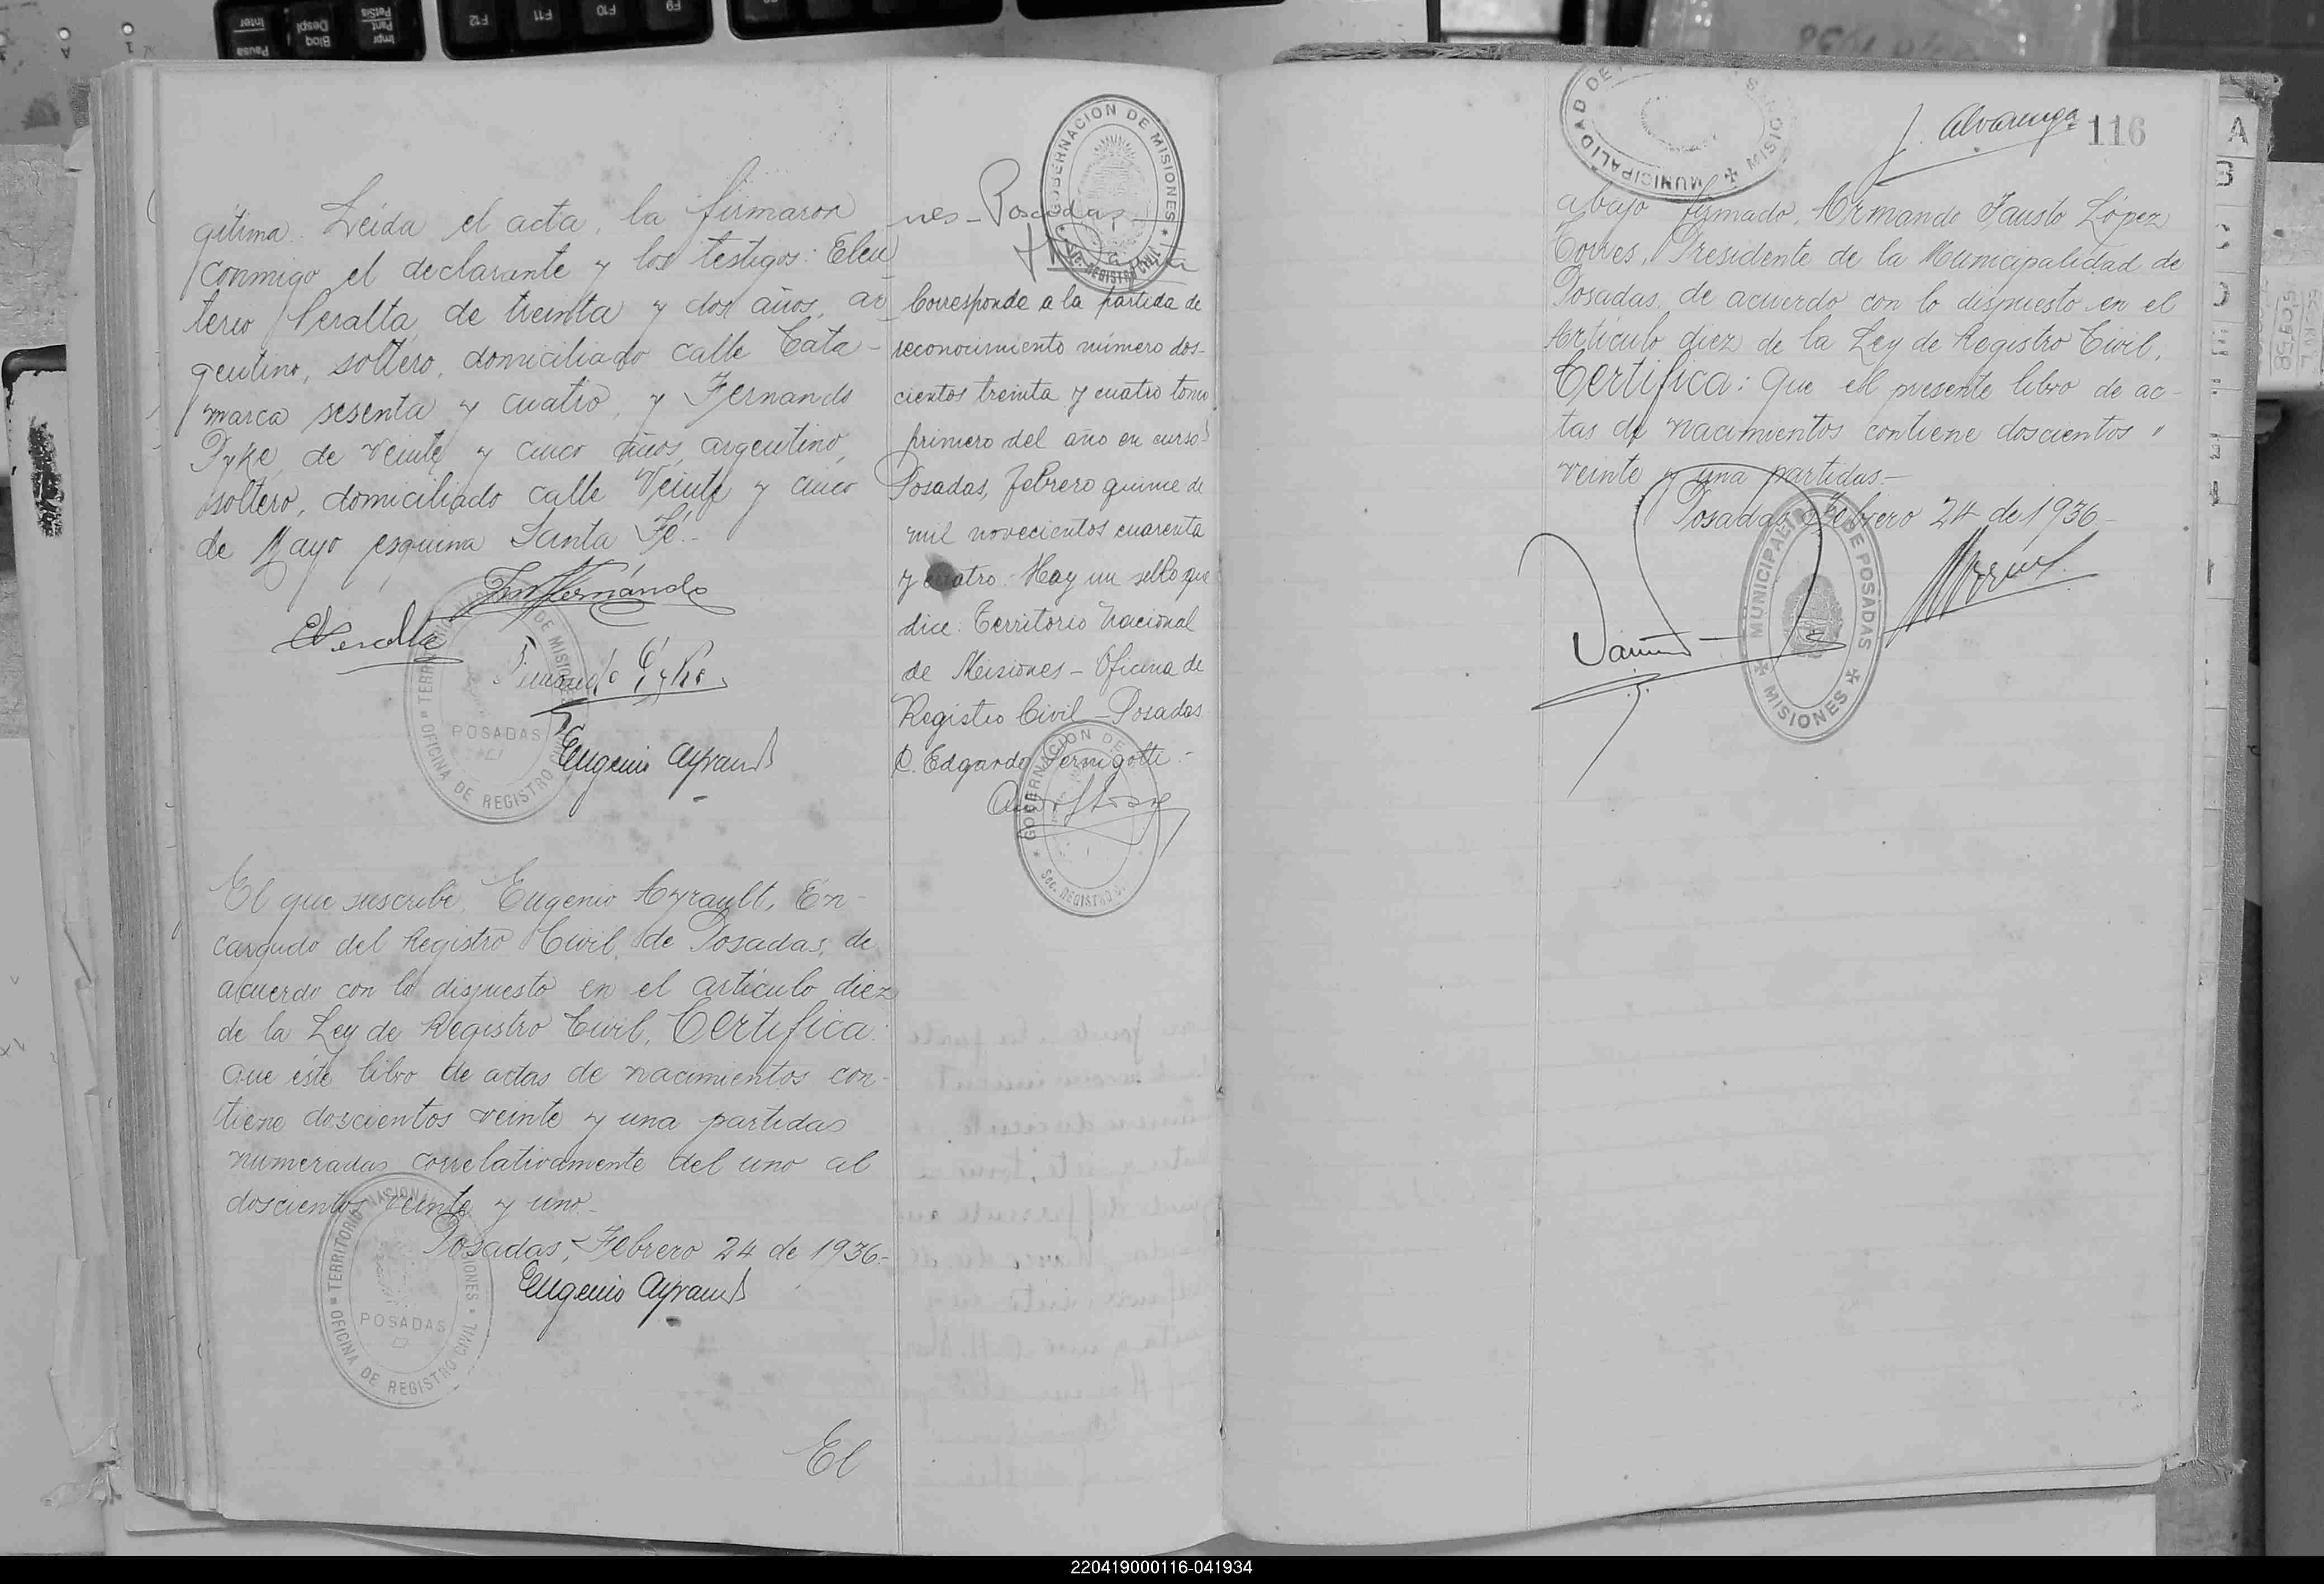 gítima. Leída el acta, la firmaron
conmigo el declarante y los testigos: Eleu
terio Peralta, de treinta y dos años, ar
gentino, soltero, domiciliado calle Cata-
marca sesenta y cuatro, y Fernando
Pyke, de veinte y cinco años, argentino,
soltero, domiciliado calle Veinte y cinco
de Mayo esquina Santa Fé.-
Hernández
EPeralta
Fernando Pyke
Eugenio Ayrault
TERRITORIO DE MISIONES
POSADAS
OFICINA DE REGISTRO CIVIL
El que suscribe, Eugenio Ayrault, En-
cargado del Registro Civil de Posadas, de
acuerdo con lo dispuesto en el artículo diez
de la Ley de Registro Civil, Certifica:
Que éste libro de actas de nacimientos con-
tiene doscientos veinte y una partidas
numeradas correlativamente del uno al
doscientos veinte y uno.-
Posadas, Febrero 24 de 1936.-
Eugenio Ayrault
TERRITORIO NASIONAL MISIONES
POSADAS
OFICINA DE REGISTRO CIVIL
El
GOBERNACION DE MISIONES
Sec. REGISTRO CIVIL
nes - Posadas
Corresponde a la partida de
reconocimiento número dos-
cientos treinta y cuatro tomo
primero del año en curso
Posadas, febrero quince de
mil novecientos cuarenta
y cuatro. Hay un sello que
dice: Territorio Nacional
de Misiones - Oficina de
Registro Civil - Posadas
C. Edgardo Pernigotti.-
GOBERNACION DE
Sec. REGISTRO C.
MUNICIPALIDAD DE
MISIONES
J. Alvarenga
116
abajo firmado, Armando Fausto López
Torres, Presidente de la Municipalidad de
Posadas, de acuerdo con lo dispuesto en el
Artículo diez de la Ley de Registro Civil,
Certifica: Que el presente libro de ac-
tas de nacimientos contiene doscientos "
veinte y una partidas.-
Posadas, Febrero 24 de 1936.-
MUNICIPALIDAD DE POSADAS
MISIONES
A
B
220419000116-041934